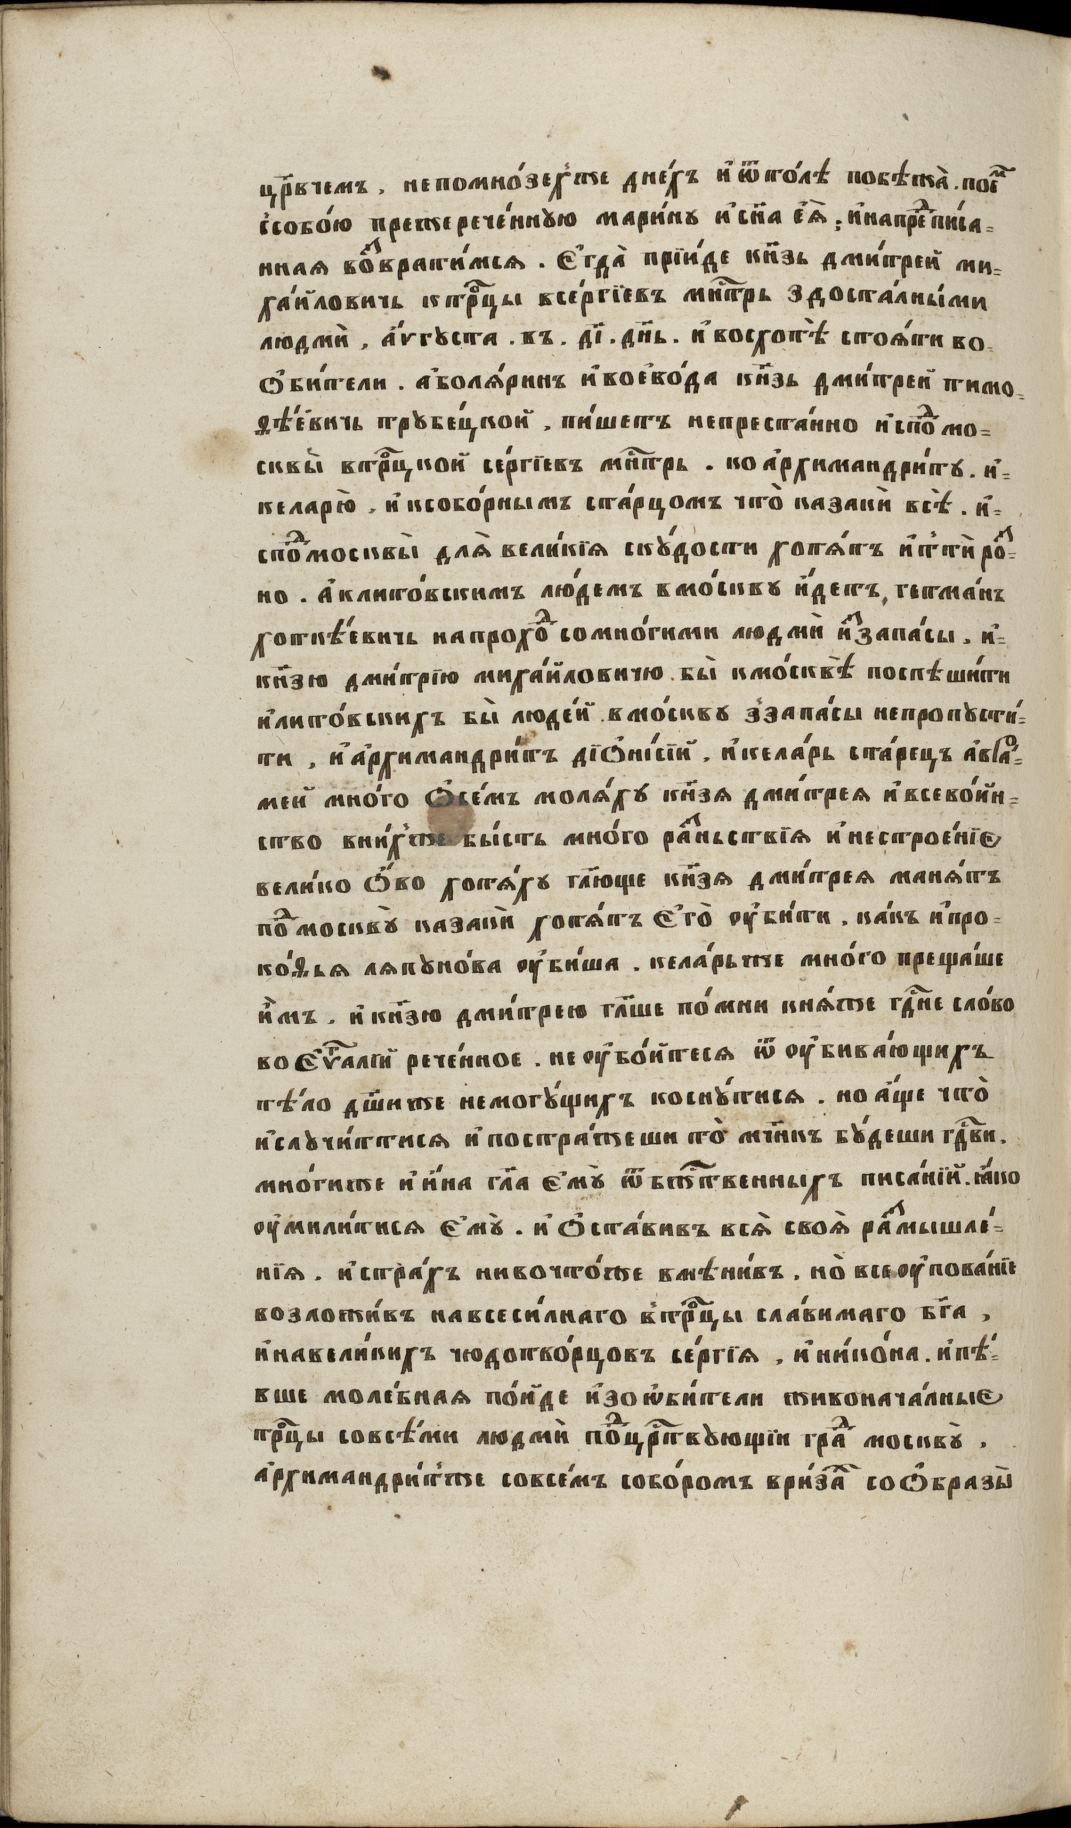 црⷭ҇вчемъ . непомно́зех̾же дне́хъ и҆ѿто́лѣ побѣжа̀ . поем̾
ісобо́ю преждерече́нную мари́ну и҆сн҃а е҆ѧ̀ ; и҆напреⷣпи́са=
нная воⷥврати́мсѧ . Є҆гда̀ прїи́де кн҃зь дми́трей ми=
ха́йловичь ктрⷪ҇цы всерґїевъ мн҃трь здоста́лными
людмѝ , а҆́vгуста . въ . д҃і . дн҃ь . и҆восхотѣ̀ стоѧ́ти во
Ѻ҆би́тели . а҆болѧ́ринъ и҆воево́да кн҃зь дми́трей тимо=
ѳѣ́евичь трубе́цкой , пи́шетъ непреста́нно и҆споⷣмо=
сквы̀ втрⷪ҇цкой се́ргїевъ мн҃трь . ко а҆рхимандри́ту . и҆=
кела́рю , и҆ксобо́рнымъ ста́рцомъ что̀ казакѝ всѣ̀ . и҆=
споⷣмосквы̀ длѧ̀ вели́кїѧ ску́дости хотѧ́тъ и҆ттѝ роⷥ=
но . а҆клито́вскимъ лю́демъ вмо́скву и҆́детъ , гетма́нъ
хоткѣ́евичь напрохоⷣ сомно́гими людмѝ и҆ⷥзапа́сы , и҆=
кн҃зю дми́трїю миха́йловичю бы̀ кмо́сквѣ поспѣши́ти
и҆лито́вскихъ бы̀ люде́й вмо́скву з̾запа́сы непропусти́=
ти , и҆а҆рхимандри́тъ дїѻни́сїй , и҆кела́рь ста́рецъ а҆враⷶ=
мей мно́го ѻ҆се́мъ молѧ́ху кн҃зѧ дми́треѧ и҆всево́йн=
ство вни́х̾же бы́сть мно́го раⷥньствїѧ и҆нестрое́нїе
вели́ко ѻ҆́во хотѧ́ху гл҃юще кн҃зѧ дми́треѧ манѧ́тъ
поⷣмоскву̀ казакѝ хотѧ́тъ Є҆го̀ ѹ҆би́ти . ка́къ и҆про=
ко́ѳьѧ лѧпуно́ва ѹ҆би́ша . кела́рьже мно́го преща́ше
и҆̀мъ . и҆кн҃зю дми́трею гл҃ше по́мни кнѧ́же гдⷭ҇не сло́во
во Є҆ѵⷢ҇алїй рече́нное . не ѹ҆бо́йтесѧ ѿ ѹ҆бива́ющихъ
тѣ́ло дш҃иже немогу́щихъ косну́тисѧ . но а҆́ще что̀
и҆случи́ттисѧ и҆постра́ждеши то̀ мч҃нкъ бу́деши гдⷭ҇ви .
мно́гиже и҆и҆́на гл҃а Є҆му̀ ѿ бжⷭ҇твенныхъ писа́нїй . ꙗ҆́ко
ѹ҆мили́тисѧ Є҆му̀ . и҆ Ѻ҆ста́вивъ всѧ̀ своѧ̀ раⷥмышле́=
нїѧ . и҆стра́хъ нивочто́же вмѣни́въ , но̀ все ѹ҆пова́нїе
возложи́въ навсеси́лнаго в̾трⷪ҇цы сла́вимаго бг҃а ,
и҆навели́кихъ чюдотво́рцовъ се́ргїѧ , и҆ни́кона . и҆пѣ́=
вше моле́бнаѧ по́йде и҆зоѡ҆би́тели живонача́лные
трⷪ҇цы совсѣ́ми людмѝ поⷣцрⷭ҇твующїи граⷣ москву̀ ,
а҆рхимандри́т̾же совсе́мъ собо́ромъ ври́заⷯ со Ѻ҆бразы̀